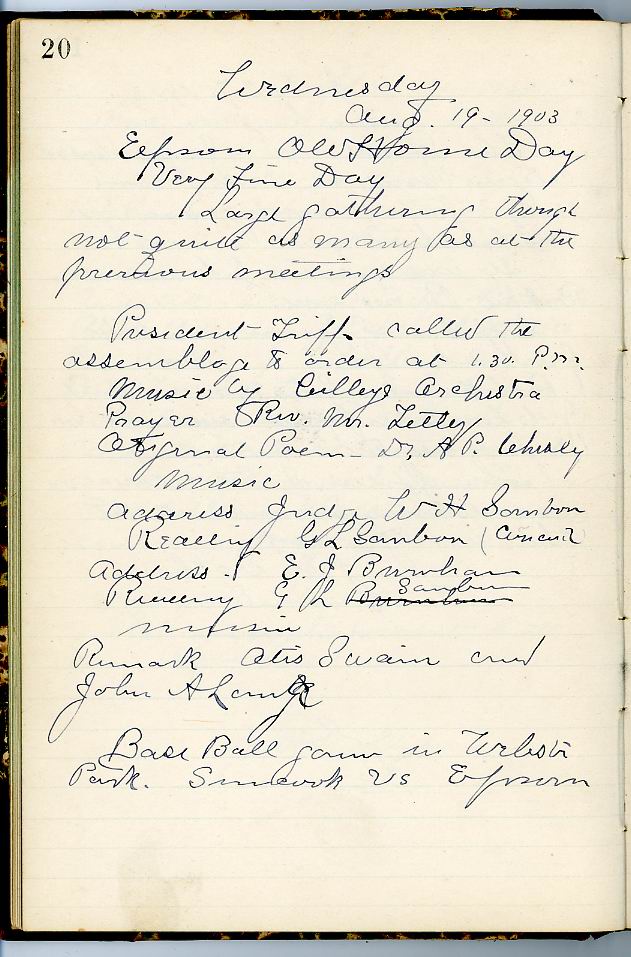 20
Wednesday
Aug. 19 - 1903
Epsom Old Home Day
Very Fine Day
Large gathering though
not quite as many as at the
previous meetings
President Tripp called the
assemblage to order at 1.30. P.m.
Music by Cilleys Orchestra
Prayer Rev. Mr. Tetley
Original Poem - Dr. A P.
Music
Address Judge W H Sanborn
Reading G L Sanborn (
Address. E. J Burnham
Reading G L Burnham Sanborn
music
Remark Otis Swain and
John A
Base Ball game in Webster
Park. Suncook Vs Epsom